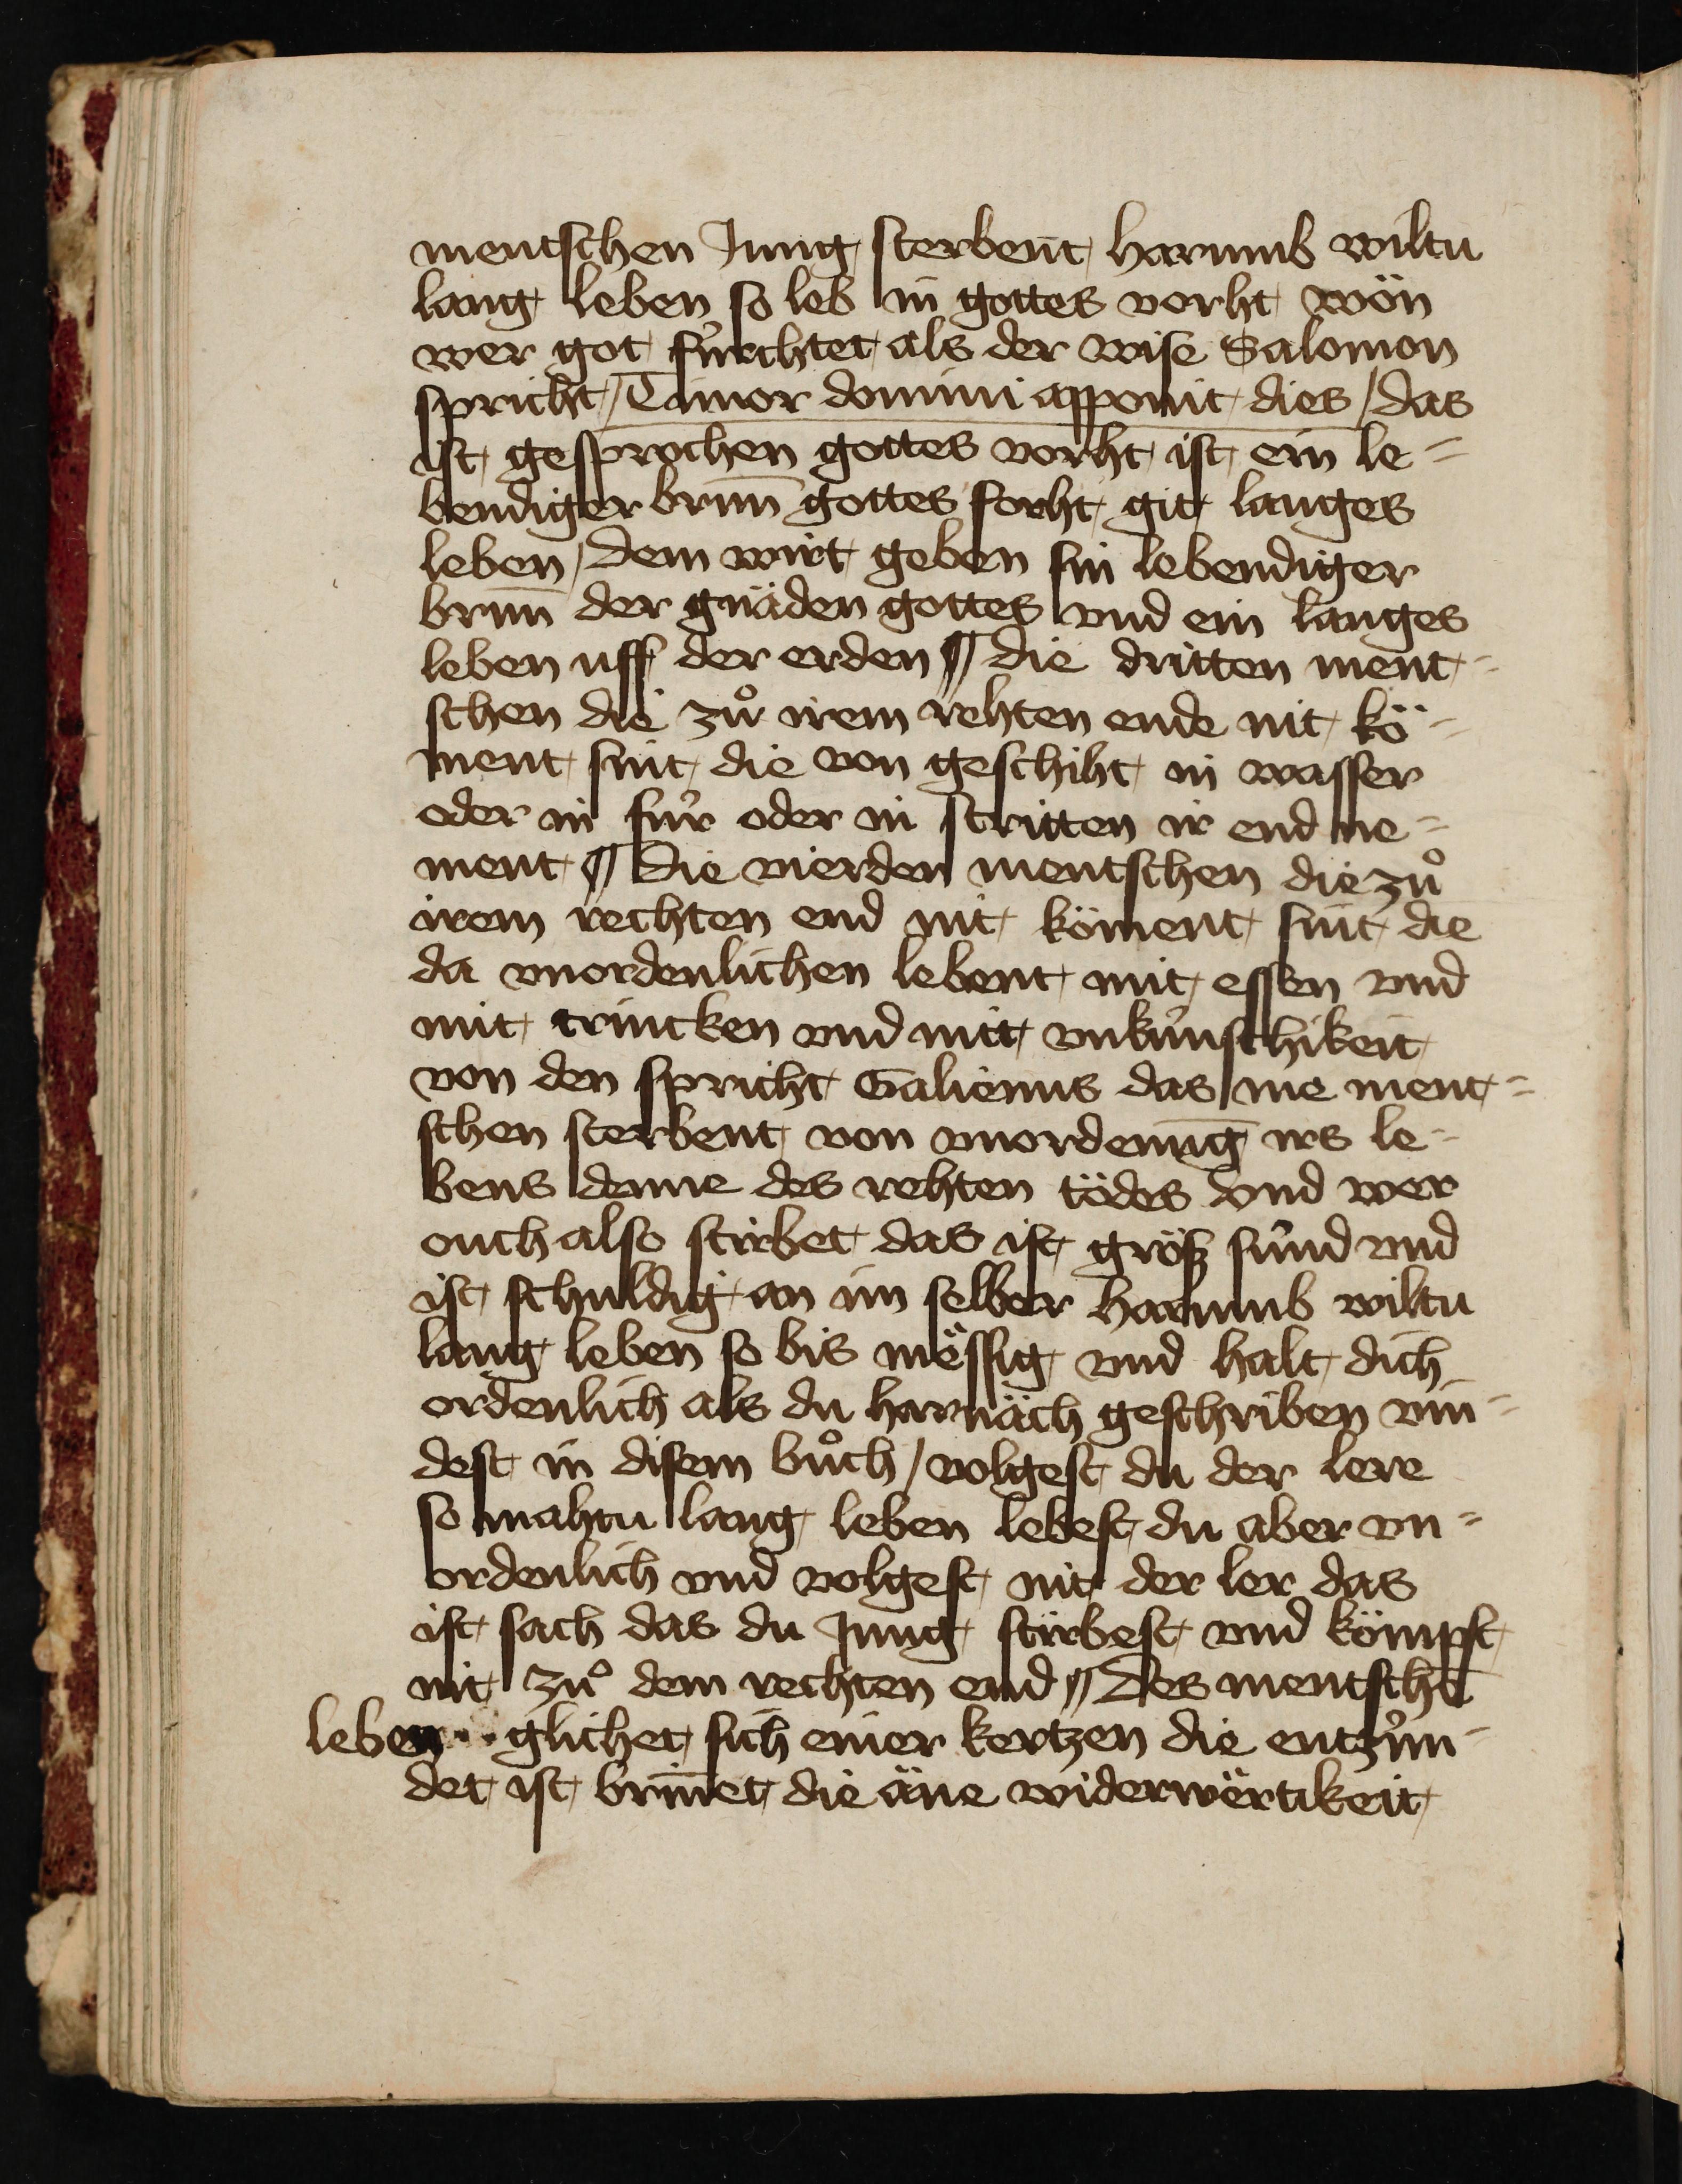 mentschen Jung sterbent harumb wiltu
lang leben so leb in gottes vorht wön
wer got fúrchtet als der wise Salomon
spricht / Timor domini apponit dies / das
ist gesprochen gottes vorht ist ein le=
bendiger brun̄ gottes forht git langes
leben / dem wirt geben sin lebendiger
brun̄ der gnäden gottes vnd ein langes
leben uff der erden ¶ die dritten ment=
schen die zů irem rehten ende nit kö=
ment sint die von geschiht in wasser
oder in fúr oder in stritten ir end ne=
ment ¶ Die vierden mentschen die zů
irem rechten end nit köment sint die
da vnordenlichen lebent mit essen vnd
mit trincken vnd mit vnkúnschikeit
von den spricht Galienus das me ment=
schen sterbent von vnordenūg irs le=
bens denne des rehten tödes vnd wer
ouch also stirbet das ist grösz súnd vnd
ist schuldig an im selber harumb wiltu
lang leben so bis mëssig vnd halt dich
ordenlich als du harnäch geschriben vin=
dest in disem bůch / volgest du der lere
so mahtu lang leben lebest du aber vn=
ordenlich vnd volgest nit der ler das
ist sach das du Jung stirbest vnd kömpst
nit zů dem rechten end ¶ Des mentschē
leben glichet sich einer kertzen die entzún=
det ist brin̄et die äne widerwërtikeit